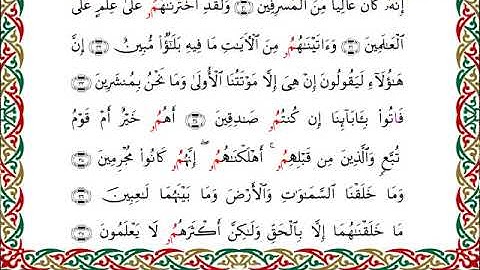 إِنَّهُۥ كَانَ عَالِيًا مِّنَ ٱلْمُسْرِفِينَ ۝ وَلَقَدِ ٱخْتَرْنَٰهُمُۥ عَلَىٰ عِلْمٍ عَلَى
ٱلْعَٰلَمِينَ ۝ وَءَاتَيْنَٰهُمُۥ مِنَ ٱلْءَايَٰتِ مَا فِيهِ بَلَٰٓؤٌا۟ مُّبِينٌ ۝ إِنَّ
هَٰٓؤُلَآءِ لَيَقُولُونَ إِنْ هِىَ إِلَّا مَوْتَتُنَا ٱلْأُولَىٰ وَمَا نَحْنُ بِمُنشَرِينَ
فَأْتُوا۟ بِـَٔابَآئِنَآ إِن كُنتُمُۥ صَٰدِقِينَ ۝ أَهُمُۥ خَيْرٌ أَمْ قَوْمُ
تُبَّعٍ وَٱلَّذِينَ مِن قَبْلِهِمُۥ ۚ أَهْلَكْنَٰهُمُۥ ۖ إِنَّهُمُۥ كَانُوا۟ مُجْرِمِينَ ۝
وَمَا خَلَقْنَا ٱلسَّمَٰوَٰتِ وَٱلْأَرْضَ وَمَا بَيْنَهُمَا لَٰعِبِينَ ۝
مَا خَلَقْنَٰهُمَآ إِلَّا بِٱلْحَقِّ وَلَٰكِنَّ أَكْثَرَهُمُۥ لَا يَعْلَمُونَ ۝